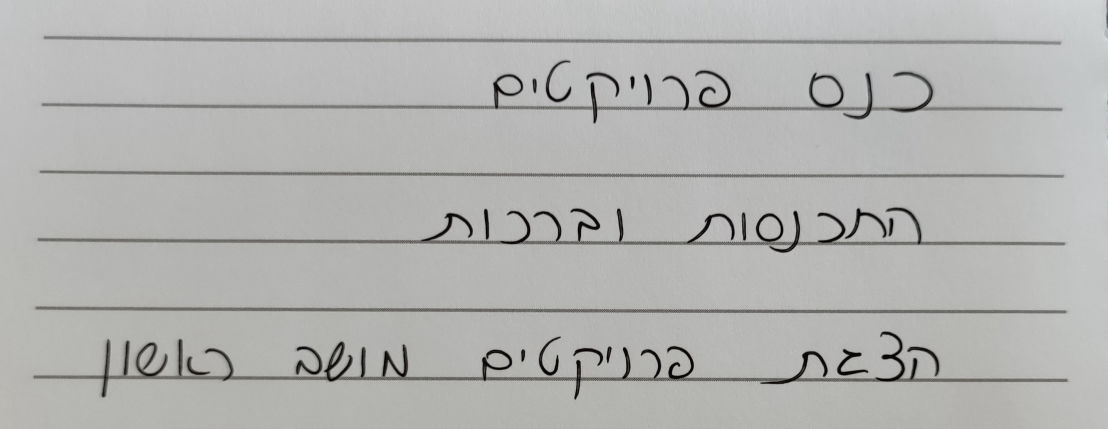 כנס פרויקטים
התכנסות וברכות
הצגת פרויקטים מושב ראשון